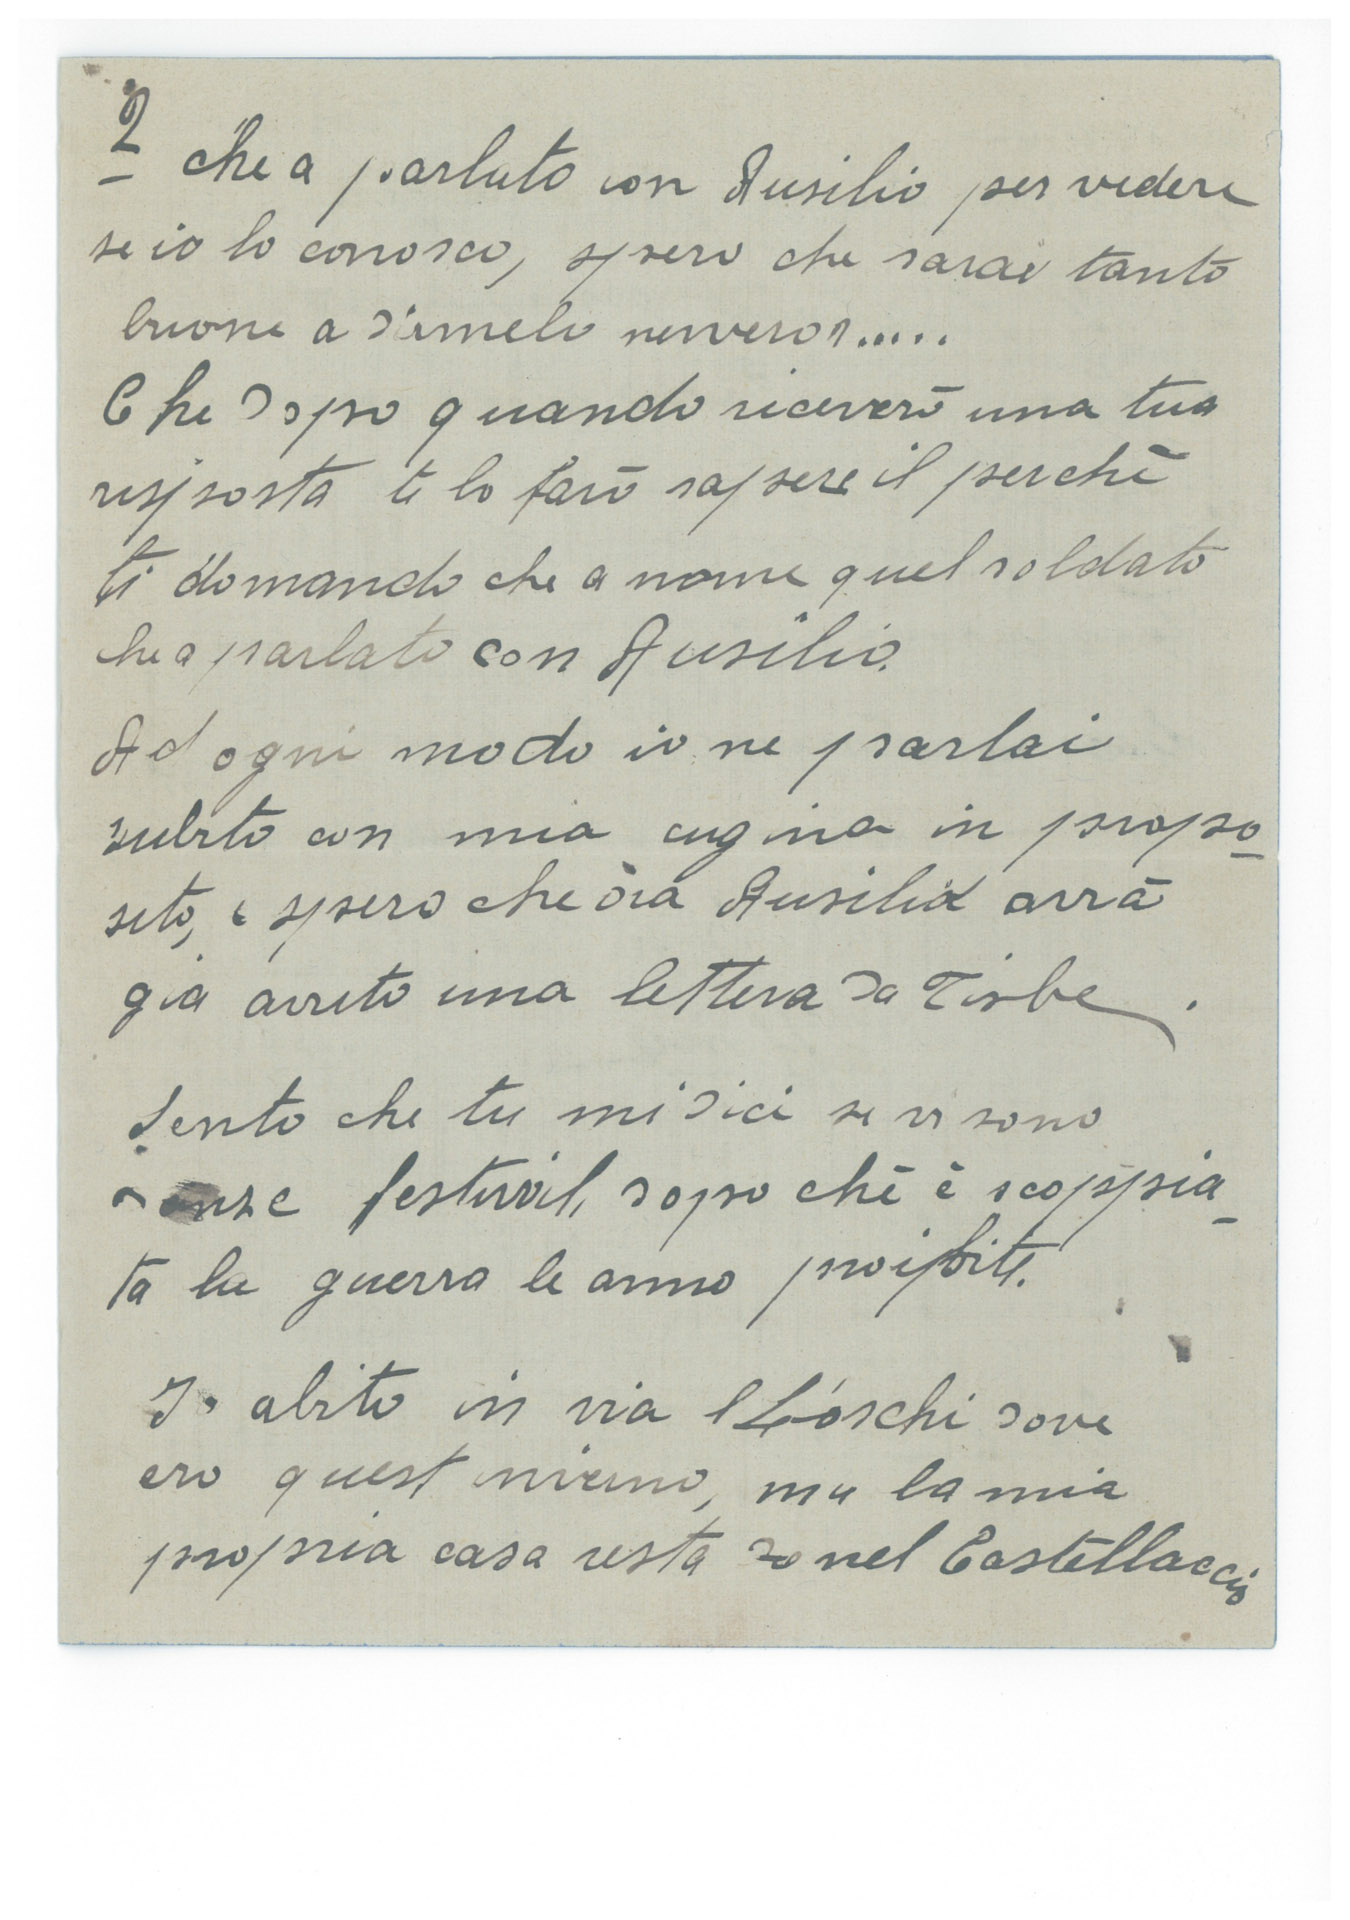 2
che a parlato con Ausilio per vedere
se io lo conosco, spero che sarai tanto
buone a dirmelo nevvero?.....
Che dopo quando riceverò una tua
risposta te lo farò sapere il perchè
ti domando che a nome quel soldato
che a parlato con Ausilio.
Ad ogni modo io ne parlai
subito con mia cugina in propo-
sito, e spero che óra Ausilio avrà
già avuto una lettera da Tisbe.
Sento che tu mi dici se vi sono
danze festival, dopo chè è scoppia-
ta la guerra le anno proibite.
Io abito in via Loschi dove
ero quest'inverno, ma la mia
propria casa resta nel Castellaccio